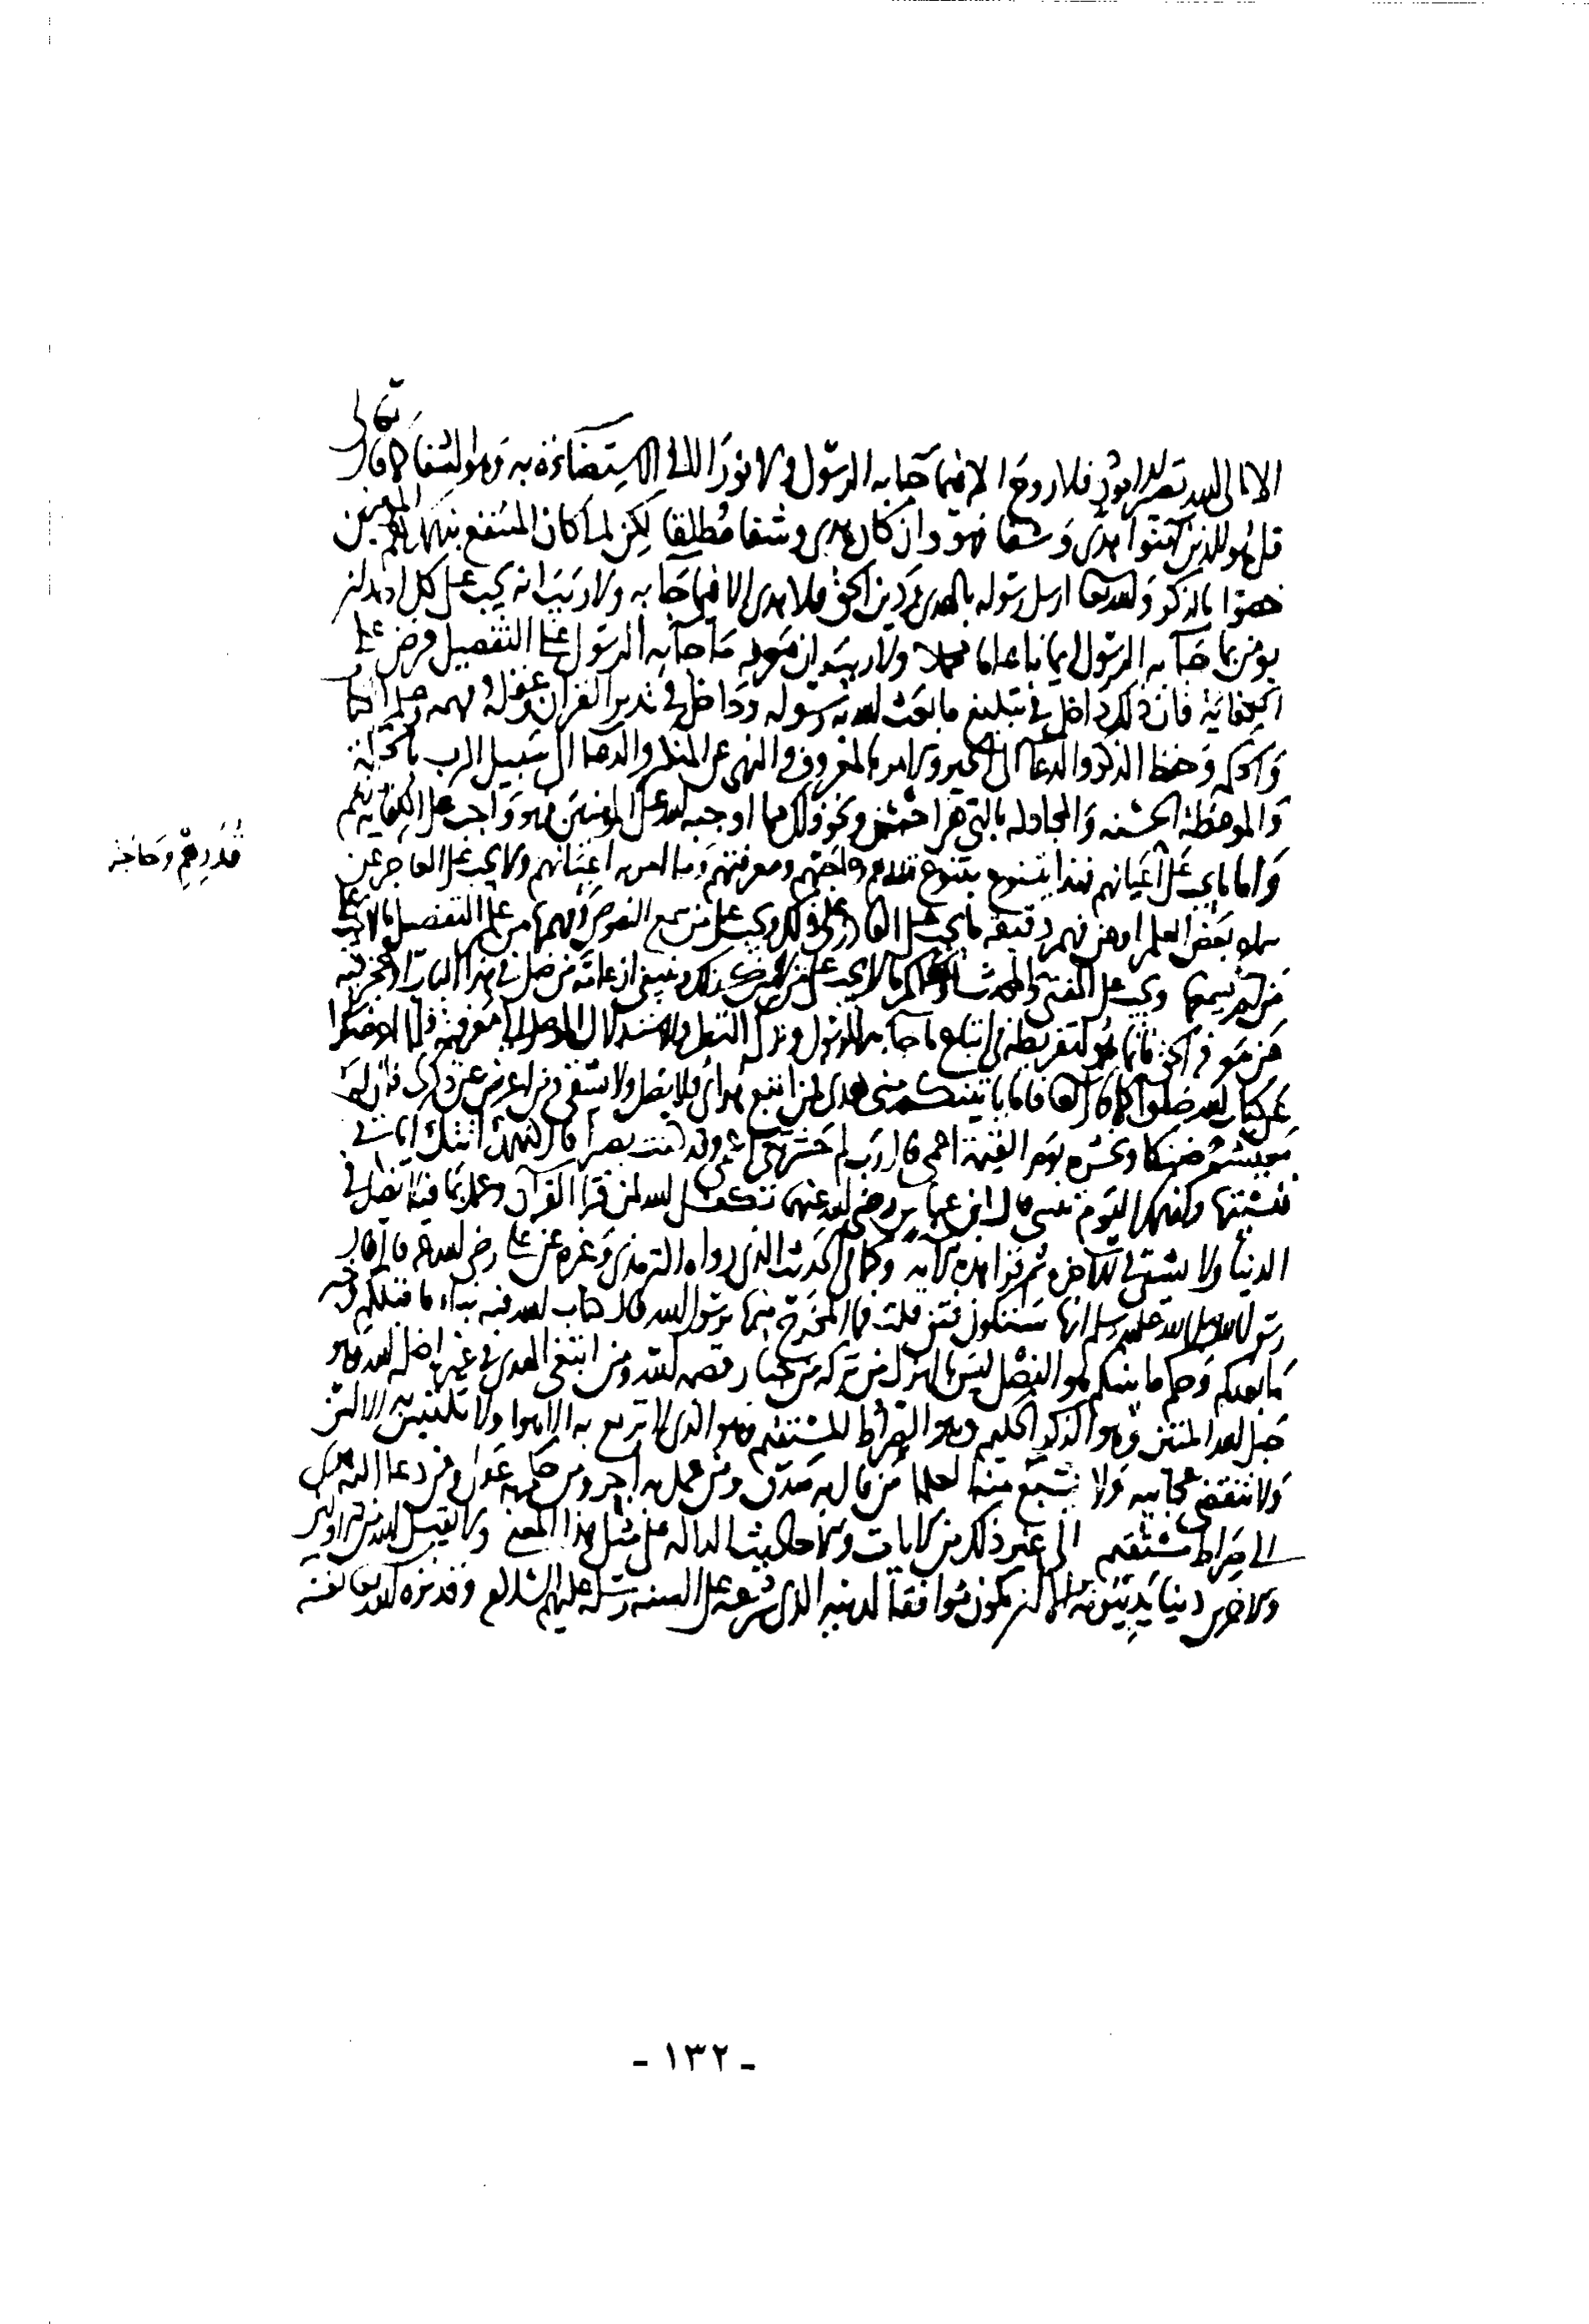 تعالى
الا الى الله تصير الامور فلا روح الا فيما جا به الرسول ولا نور الا في الاستضاءة به وهو الشفا كما قال
قل هو للذين آمنوا هدى وشفا فهو وان كان هدى وشفا مطلقا لكن لما كان المنتفع بذلك هم المومنين
خصوا بالذكر والله تعالى ارسل رسوله بالهدى ودين الحق فلا هدى الا فيما جا به ولا ريب انه يجب على كل احد ان
يومن بما جا به الرسول ايمانا عاما مجملا ولا ريب ان معرفة ما جا به الرسول على التفصيل فرض على
الكفاية فان ذلك داخل في تبليغ ما بعث الله به رسوله وداخل في تدبر القران وعقله وفهمه وعلم الكتاب
والحكمة وحفظ الذكر والدعا الى الخير والامر بالمعروف والنهي عن المنكر والدعا الى سبيل الرب بالحكمة
والموعظة الحسنه والمجادله بالتي هي احسن ونحو ذلك مما اوجبه الله على المومنين فهو واجب على الكفاية منهم
واما ما يجب على اعيانهم فهذا يتنوع بتنوع قدرهم وحاجتهم ومعرفتهم وما امر به اعيانهم ولا يجب على العاجز عن
قدرهم وحاجة
سماع بعض العلم او عن فهم دقيقه ما يجب على القادر على ذلك ويجب على من سمع النصوص وفهمها من علم التفصيل ما لا يجب على
من لم يسمعها ويجب على المفتي والمحدث والحاكم ما لا يجب على من ليس كذلك وينبغي ان عامة من ضل في هذا الباب او عجز فيه
عن معرفة الحق فانما هو لتفريطه في اتباع ما جا به الرسول وترك النظر والاستدلال الموصل الى معرفته فلما اعرضوا
عن كتاب الله ضلوا كما قال تعالى فاما ياتينكم مني هدى فمن اتبع هداي فلا يضل ولا يشقى ومن اعرض عن ذكري فان له
معيشة ضنكا ونحشره يوم القيمة اعمى قال رب لم حشرتني اعمى وقد كنت بصيرا قال كذلك اتتك اياتنا
فنسيتها وكذلك اليوم تنسى قال ابن عباس رضي الله عنهما تكفل الله لمن قرا القرآن وعمل بما فيه ان لا يضل في
الدنيا ولا يشقى في الآخرة ثم قرا هذه الآية وكما في الحديث الذي رواه الترمذي وغيره عن علي رضي الله عنه قال قال
رسول الله صلى الله عليه وسلم انها ستكون فتن قلت فما المخرج منها يرسول الله قال كتاب الله فيه نبأ ما قبلكم وخبر
ما بعدكم وحكم ما بينكم هو الفصل ليس بالهزل من تركه من جبار قصمه الله ومن ابتغى الهدى في غيره اضله الله وهو
حبل الله المتين وهو الذكر الحكيم وهو الصراط المستقيم وهو الذي لا تزيغ به الاهوا ولا تلتبس به الالسن
ولا تنقضي عجائبه ولا يشبع منه العلما من قال به صدق ومن عمل به اجر ومن حكم به عدل ومن دعا اليه هدي
الى صراط مستقيم الى غير ذلك من الايات والاحاديث الداله على مثل هذا المعنى ولا يقبل الله من الاولين
والاخرين دينا يدينونه الا ان يكون موافقا لدينه الذي شرعه على السنة رسله عليهم السلام وقد نزه الله تعالى نفسه
- ١٣٢ -